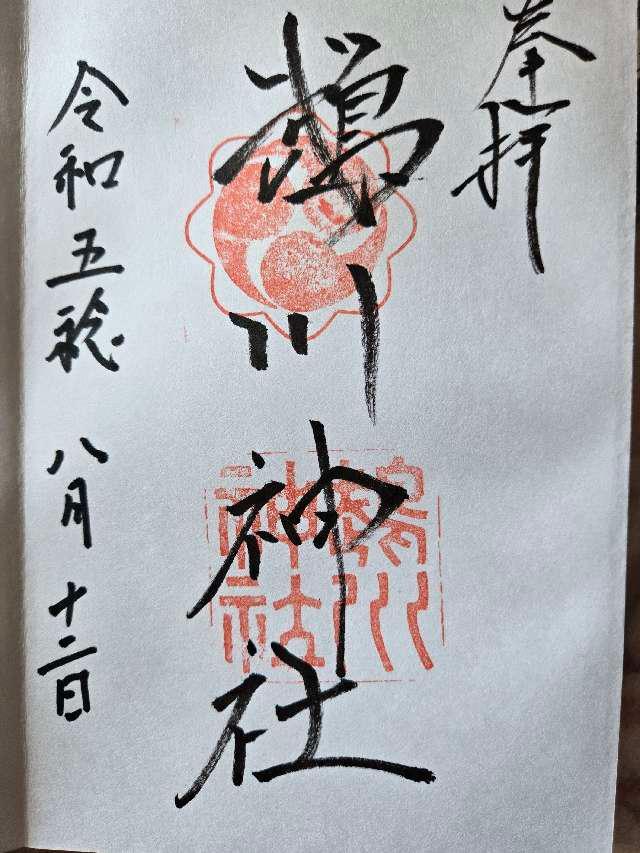 奉拝
鵡川神社
令和五稔 八月十二日
鵡川
神社